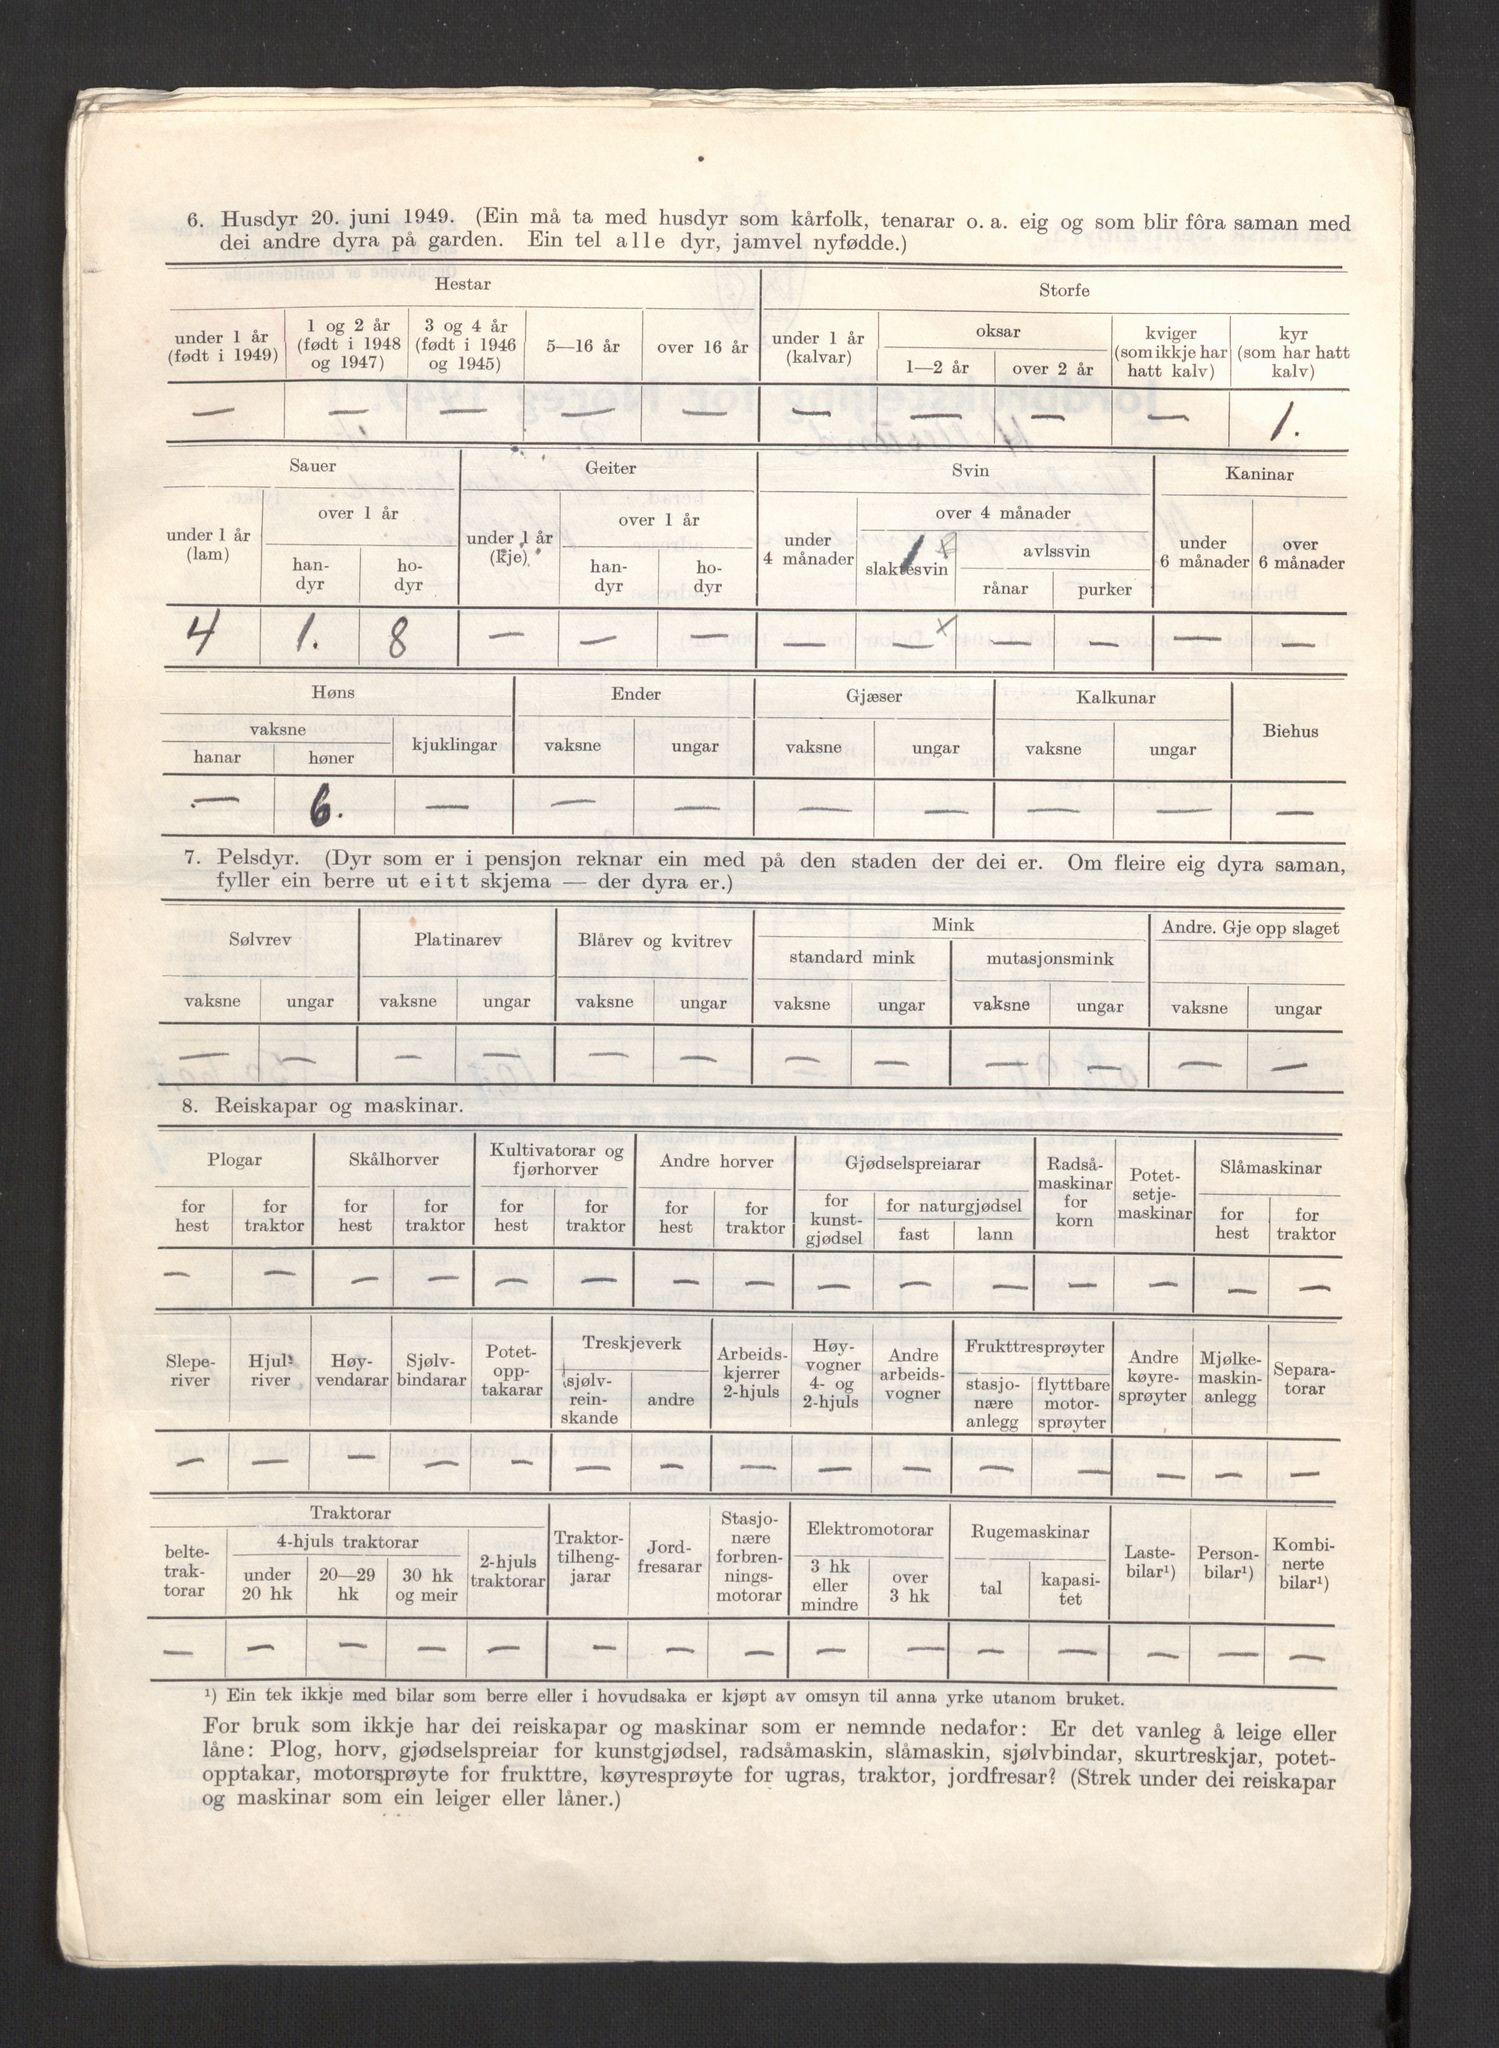 6. Husdyr 20. juni 1949. (Ein må ta med husdyr som kårfolk, tenarar o. a. eig og som blir fôra saman med
dei andre dyra på garden. Ein tel alle dyr, jamvel nyfødde.)
Hestar Storfe
under 1 år (født i 1949) 1 og 2 år (født i 1948 og 1947) 3 og 4 år (født i 1946 og 1945) 5—16 år over 16 år under 1 år (kalvar) oksar 1—2 år over 2 år kviger (som ikkje har hatt kalv) kyr (som har hatt kalv)
— — — — — — — — — 1.
Sauer Geiter Svin Kaninar
under 1 år (lam) over 1 år handyr hodyr under 1 år (kje) over 1 år handyr hodyr under 4 månader over 4 månader slaktesvin avlssvin rånar purker under 6 månader over 6 månader
1 x
4 1. 8 — — — — — x — — — —
Høns Ender Gjæser Kalkunar Biehus
vaksne hanar høner kjuklingar vaksne ungar vaksne ungar vaksne ungar
— 6. — — — — — — — —
7. Pelsdyr. (Dyr som er i pensjon reknar ein med på den staden der dei er. Om fleire eig dyra saman,
fyller ein berre ut eitt skjema — der dyra er.)
Sølvrev Platinarev Blårev og kvitrev Mink Andre. Gje opp slaget
standard mink mutasjonsmink
vaksne ungar vaksne ungar vaksne ungar vaksne ungar vaksne ungar vaksne ungar
— — — — — — — — — — — —
8. Reiskapar og maskinar.
Plogar Skålhorver Kultivatorar og fjørhorver Andre horver Gjødselspreiarar Radsåmaskinar for korn Potetsetjemaskinar Slåmaskinar
for hest for traktor for hest for traktor for hest for traktor for hest for traktor for kunstgjødsel for naturgjødsel fast lann for hest for traktor
— — — — — — — — — — — — — — —
Sleperiver Hjulriver Høyvendarar Sjølvbindarar Potetopptakarar Treskjeverk sjølvreinskande andre Arbeidskjerrer 2-hjuls Høyvogner 4- og 2-hjuls Andre arbeidsvogner Frukttresprøyter stasjonære anlegg flyttbare motorsprøyter Andre køyresprøyter Mjølkemaskinanlegg Separatorar
— — — — — — — — — — — — — — —
Traktorar
beltetraktorar 4-hjuls traktorar under 20 hk 20—29 hk 30 hk og meir 2-hjuls traktorar Traktortilhengjarar Jordfresarar Stasjonære forbrenningsmotorar Elektromotorar 3 hk eller mindre over 3 hk Rugemaskinar tal kapasitet Lastebilar¹) Personbilar¹) Kombinerte bilar¹)
— — — — — — — — — — — — — — —
¹) Ein tek ikkje med bilar som berre eller i hovudsaka er kjøpt av omsyn til anna yrke utanom bruket.
For bruk som ikkje har dei reiskapar og maskinar som er nemnde nedafor: Er det vanleg å leige eller
låne: Plog, horv, gjødselspreiar for kunstgjødsel, radsåmaskin, slåmaskin, sjølvbindar, skurtreskjar, potet-
opptakar, motorsprøyte for frukttre, køyresprøyte for ugras, traktor, jordfresar? (Strek under dei reiskapar
og maskinar som ein leiger eller låner.)